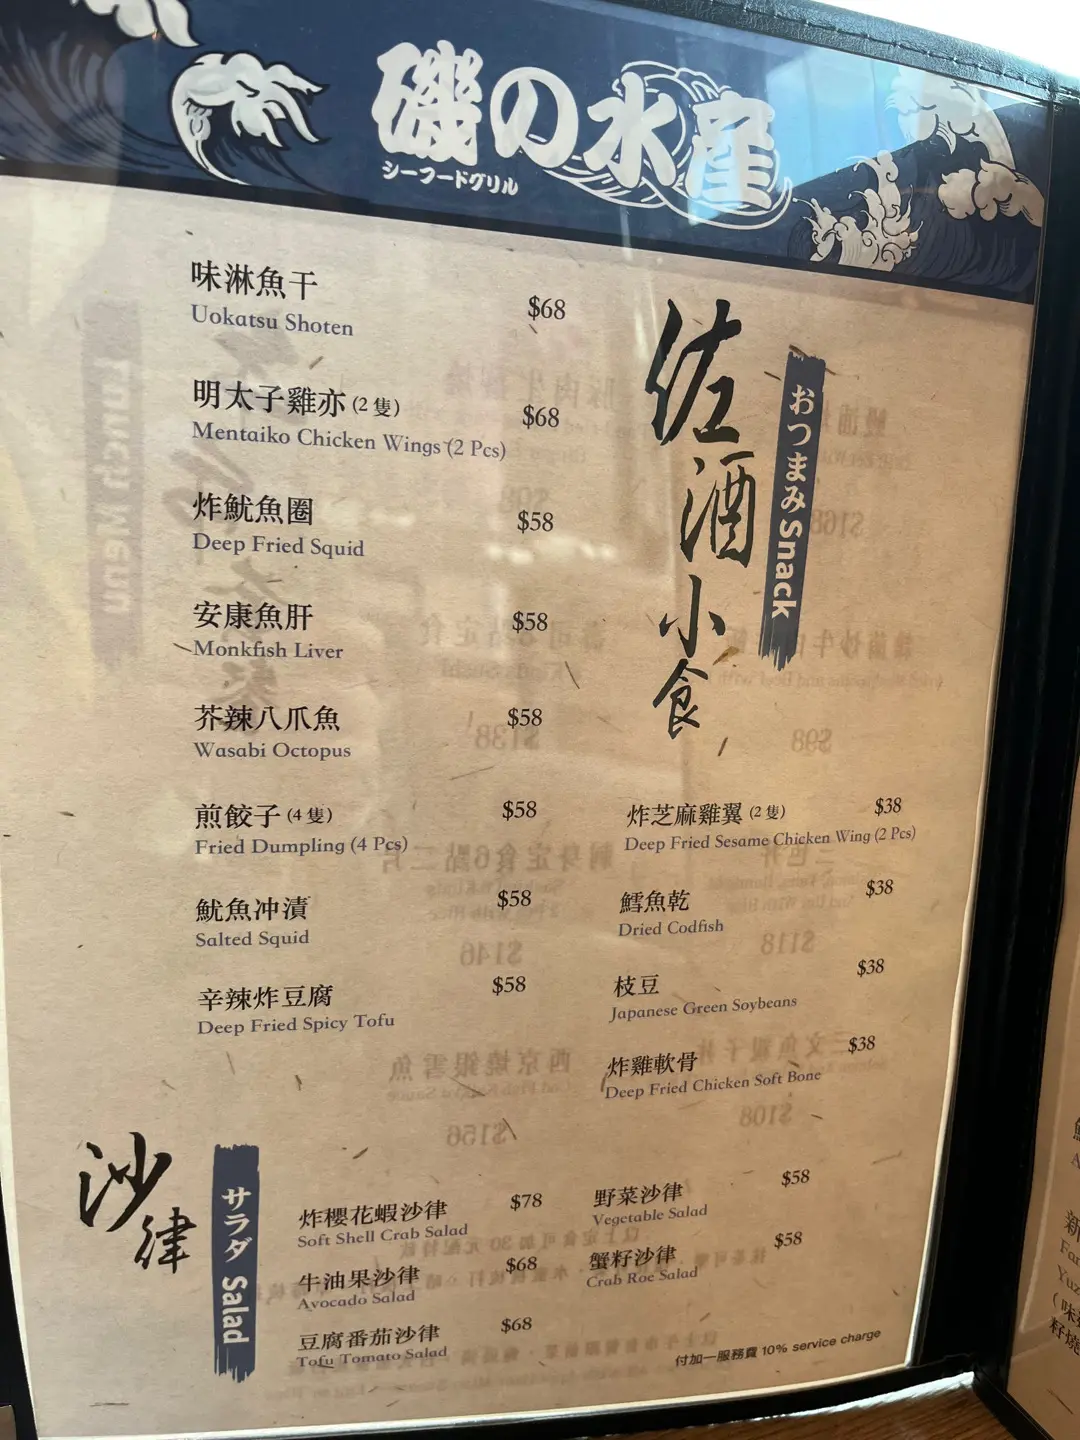 磯の水産
シーフードグリル
佐酒小食
おつまみ Snack
味淋魚干
Uokatsu Shoten
$68
明太子雞亦 (2 隻)
Mentaiko Chicken Wings (2 Pcs)
$68
炸魷魚圈
Deep Fried Squid
$58
安康魚肝
Monkfish Liver
$58
芥辣八爪魚
Wasabi Octopus
$58
煎餃子 (4 隻)
Fried Dumpling (4 Pcs)
$58
魷魚冲漬
Salted Squid
$58
辛辣炸豆腐
Deep Fried Spicy Tofu
$58
炸芝麻雞翼 (2 隻)
Deep Fried Sesame Chicken Wing (2 Pcs)
$38
鱈魚乾
Dried Codfish
$38
枝豆
Japanese Green Soybeans
$38
炸雞軟骨
Deep Fried Chicken Soft Bone
$38
沙律
サラダ Salad
炸櫻花蝦沙律
Soft Shell Crab Salad
$78
牛油果沙律
Avocado Salad
$68
豆腐番茄沙律
Tofu Tomato Salad
$68
野菜沙律
Vegetable Salad
$58
蟹籽沙律
Crab Roe Salad
$58
付加一服務費 10% service charge